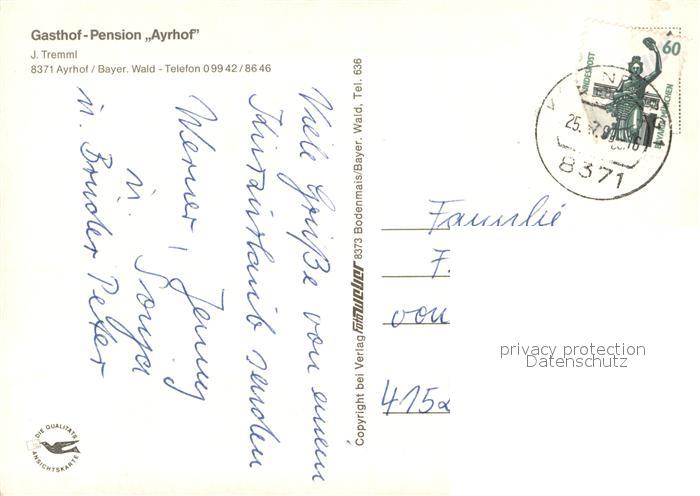 Gasthof-Pension „Ayrhof"
J. Tremml
8371 Ayrhof / Bayer. Wald - Telefon 0 99 42 / 86 46
Viele Grüße von einem
Kurzurlaub senden
Werner, Jenny
u. Sonja
u. Bruder Peter
DIE QUALITÄTS
ANSICHTSKARTE
Copyright bei Verlag foto weber 8373 Bodenmais/Bayer. Wald, Tel. 636
60
BUNDESPOST
BAVARIA MÜNCHEN
25.
8371
Familie
F.
von
415
privacy protection
Datenschutz